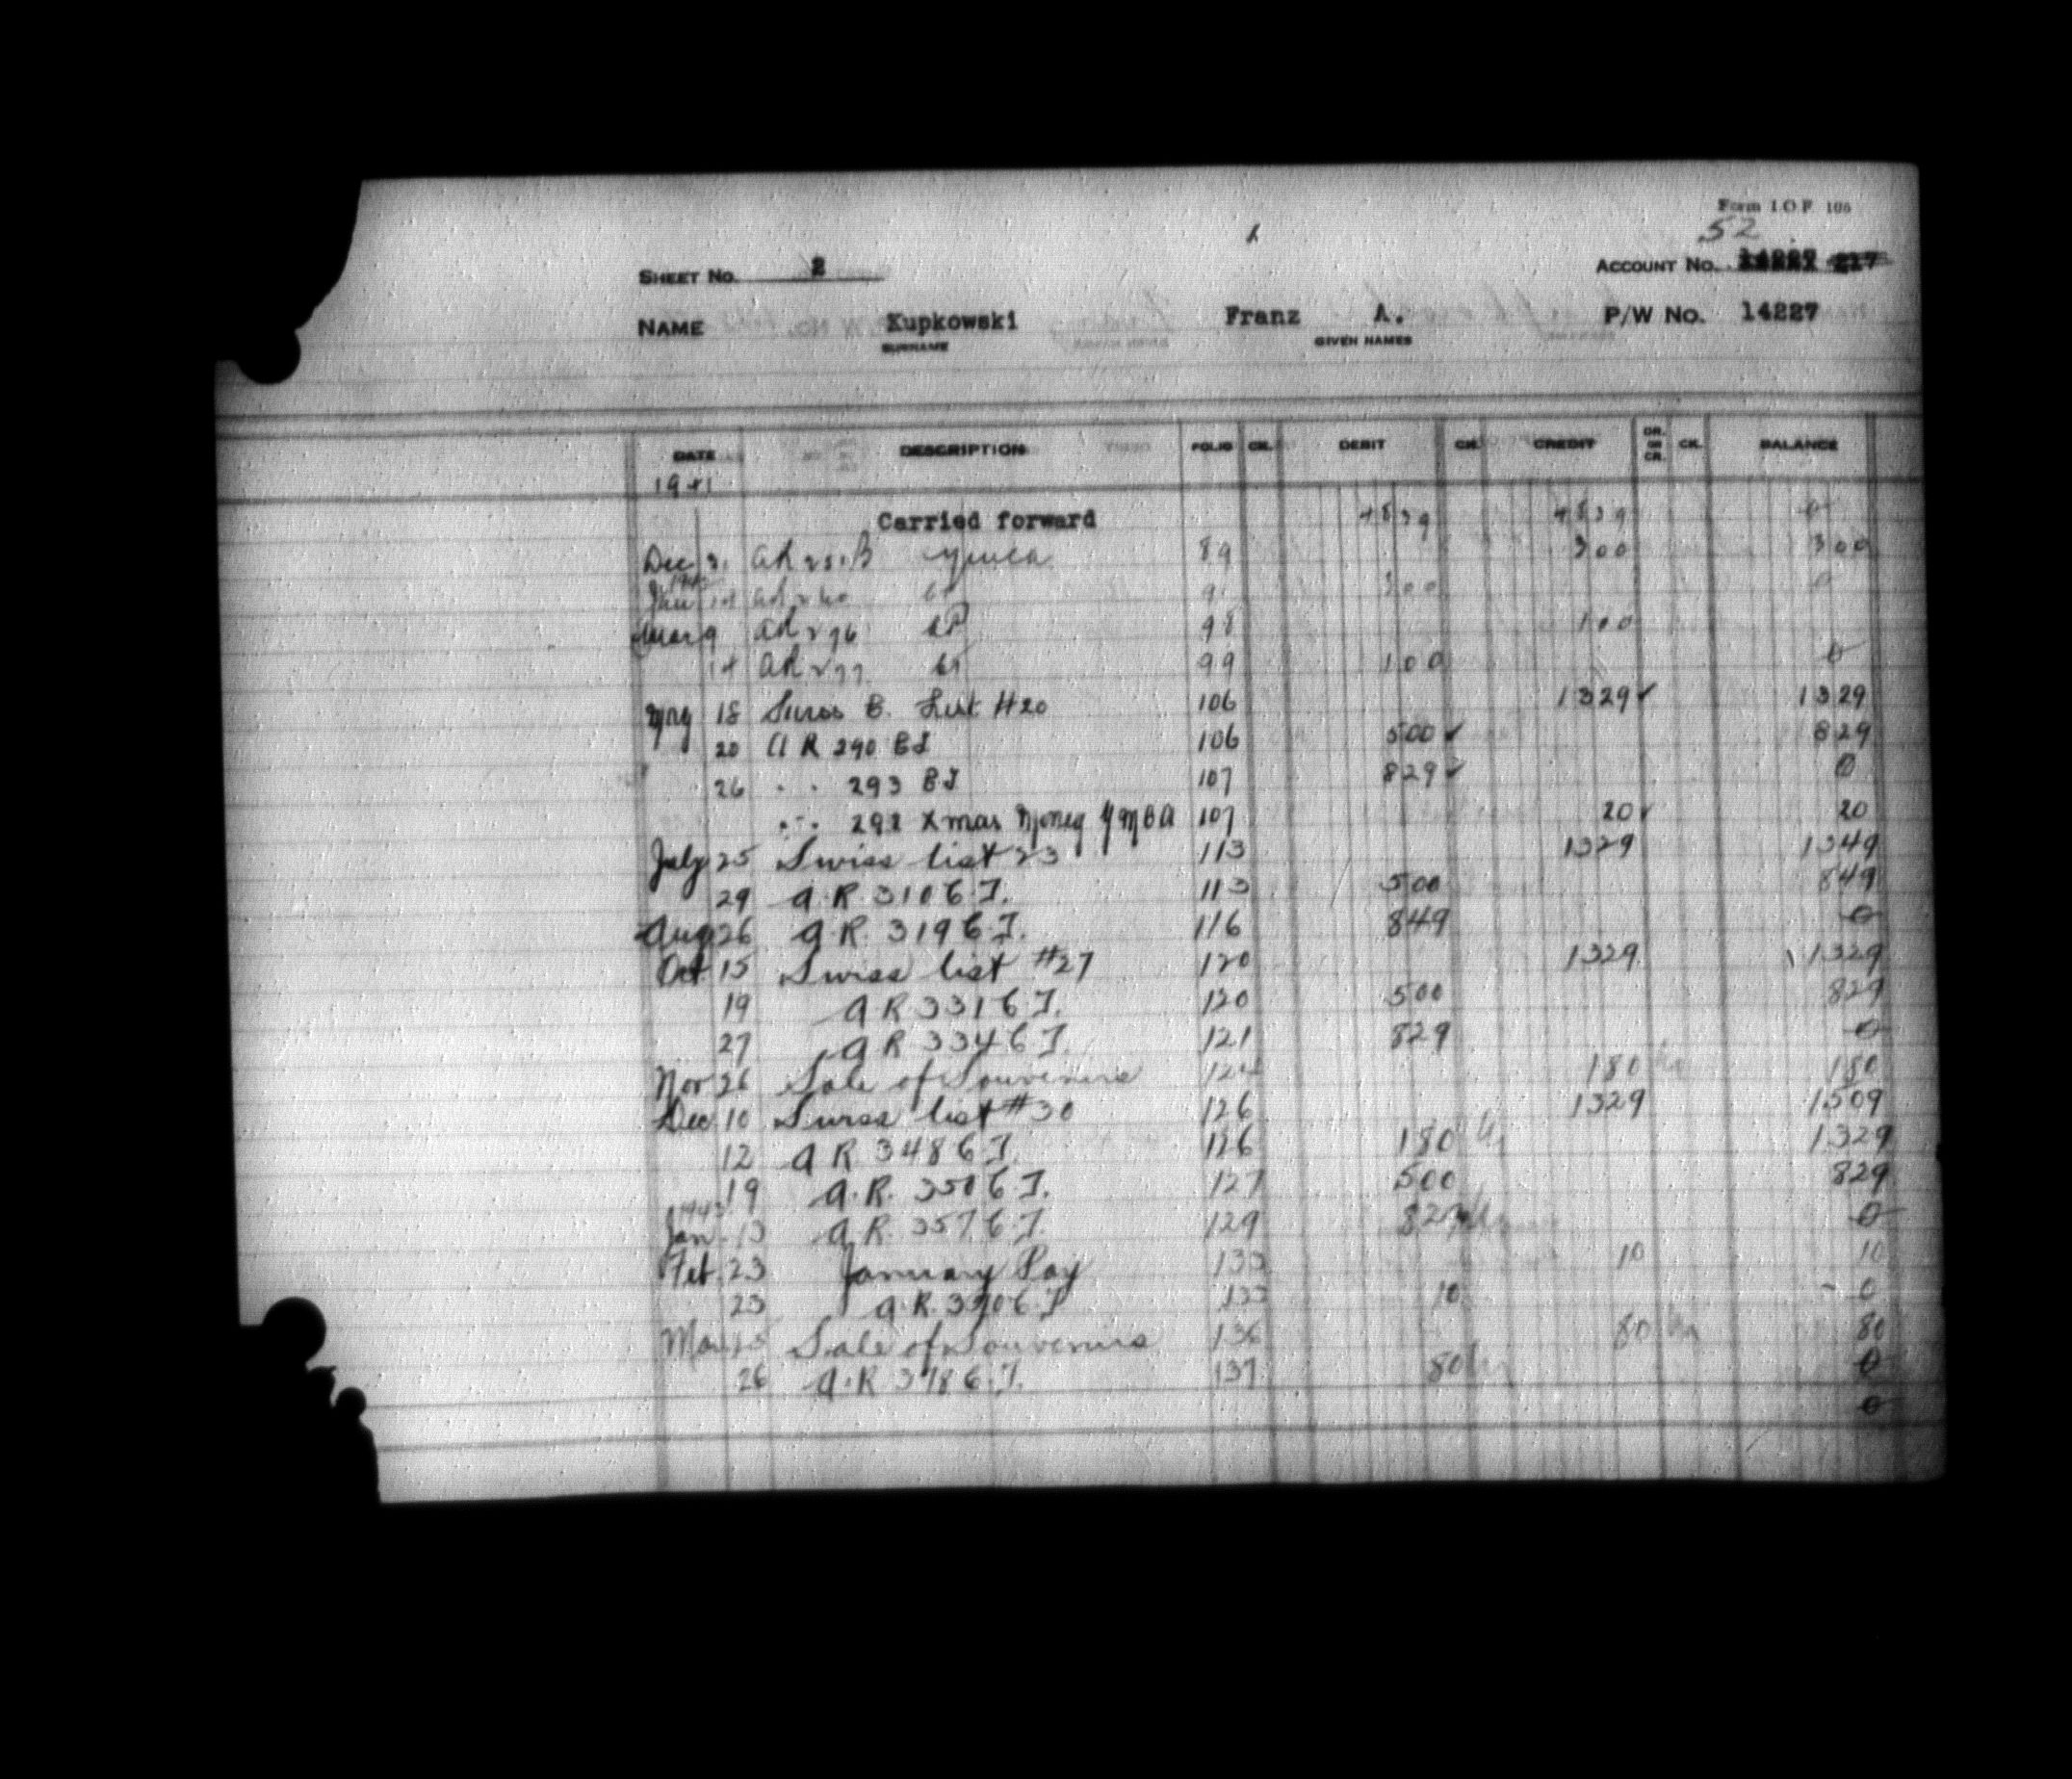 Form I.O.F. 106
52
SHEET No. 2 ACCOUNT No. 14227 217
NAME Kupkowski Franz A. P/W No. 14227
SURNAME GIVEN NAMES
DATE DESCRIPTION FOLIO CK. DEBIT CK. CREDIT DR. OR CR. CK. BALANCE
1941
Carried forward 4839 4839 0
Dec 31 AR 251 B ymca 89 300 300
1942
Jan 14 AR 260 300 0
Mar 9 AR 276 98 100
14 AR 277 99 100 0
May 18 Swiss B. List #20 106 1329 ✓ 1329
20 A R 290 BI 106 500 ✓ 829
26 " " 293 BI 107 829 ✓ 0
" " 292 Xmas Money YMCA 107 20 ✓ 20
July 25 Swiss list 23 113 1329 1349
29 A.R. 310 C.I. 113 500 849
Aug 26 A.R. 319 C.I. 116 849 0
Oct 15 Swiss list #27 120 1329 1329
19 A R 331 C I. 120 500 829
27 A R 334 C I. 121 829 0
Nov 26 Sale of Souvenirs 124 180 180
Dec 10 Swiss list #30 126 1329 1509
12 A R. 348 C I. 126 180 1329
19 A.R. 350 C I. 127 500 829
1943
Jan 13 A.R. 357 C.I. 129 829 0
Feb. 23 January Pay 133 10 10
23 A.R. 370 C I 133 10 0
Mar 15 Sale of Souvenirs 136 80 80
26 A.R. 378 C.I. 137 80 0
0